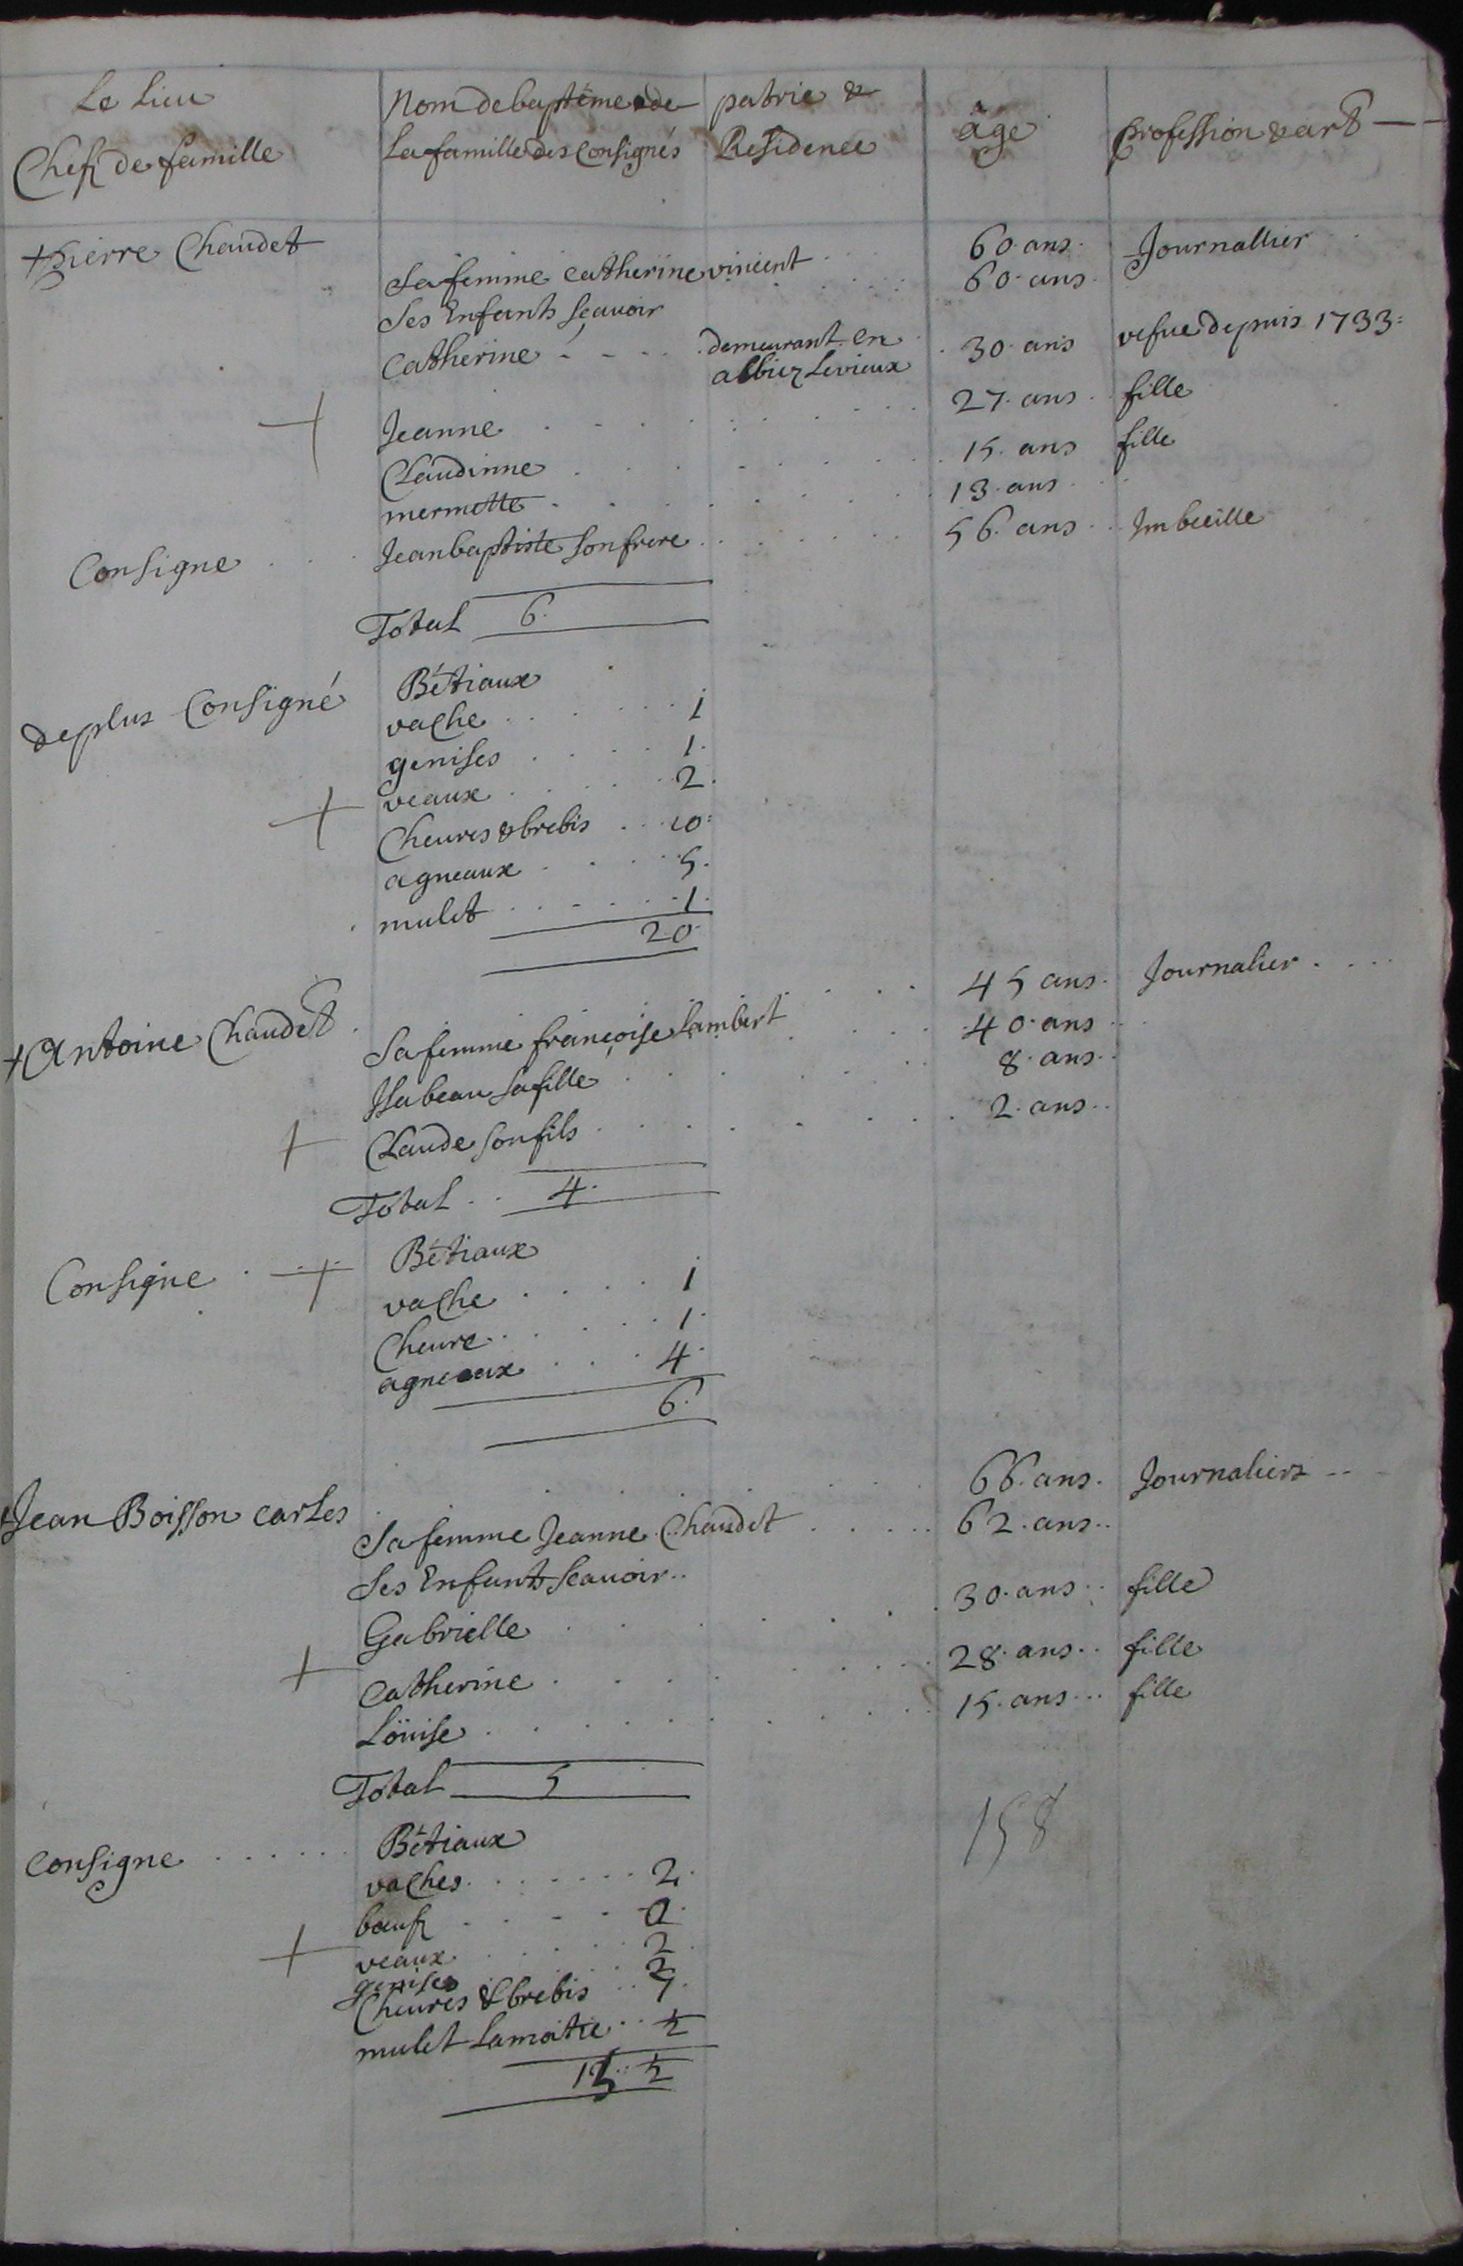 Le Lieu
Chefz de famille
Nom de baptême & de
La famille des Consignés
patrie &
Residence
âge
profession & art
+ pierre Chaudet 60. ans. Journallier
Sa femme catherine vincent 60. ans.
Ses Enfants scauoir
catherine demeurant en 30. ans vefue depuis 1733:
albiez Levieux
+ Jeanne 27. ans. fille
Claudinne 15. ans fille
mermette 13. ans
Consigne Jean baptiste son frere 56. ans Imbecille
Total 6.
de plus Consigné Bétiaux
vache 1
genises 1.
+ veaux 2.
Cheures & brebis 10:
agneaux 5.
mulet 1.
20
+ Antoine Chaudet 45 ans. Journalier
Sa femme françoise Lambert 40. ans
Isabeau sa fille 8. ans.
+ Claude son fils 2. ans.
Total 4.
Consigne + Bétiaux
vache 1
Cheure 1.
agneaux 4.
6.
+ Jean Boisson carles 66. ans. Journaliers
Sa femme Jeanne Chaudet 62. ans.
Ses Enfants scauoir
Gabrielle 30. ans fille
+ Catherine 28. ans fille
Loüise 15. ans fille
Total 5
158
consigne Bétiaux
vaches 2.
bœufz
+ veaux 2
genises 2
Cheures & brebis 7.
mulet Lamoitie ½
½